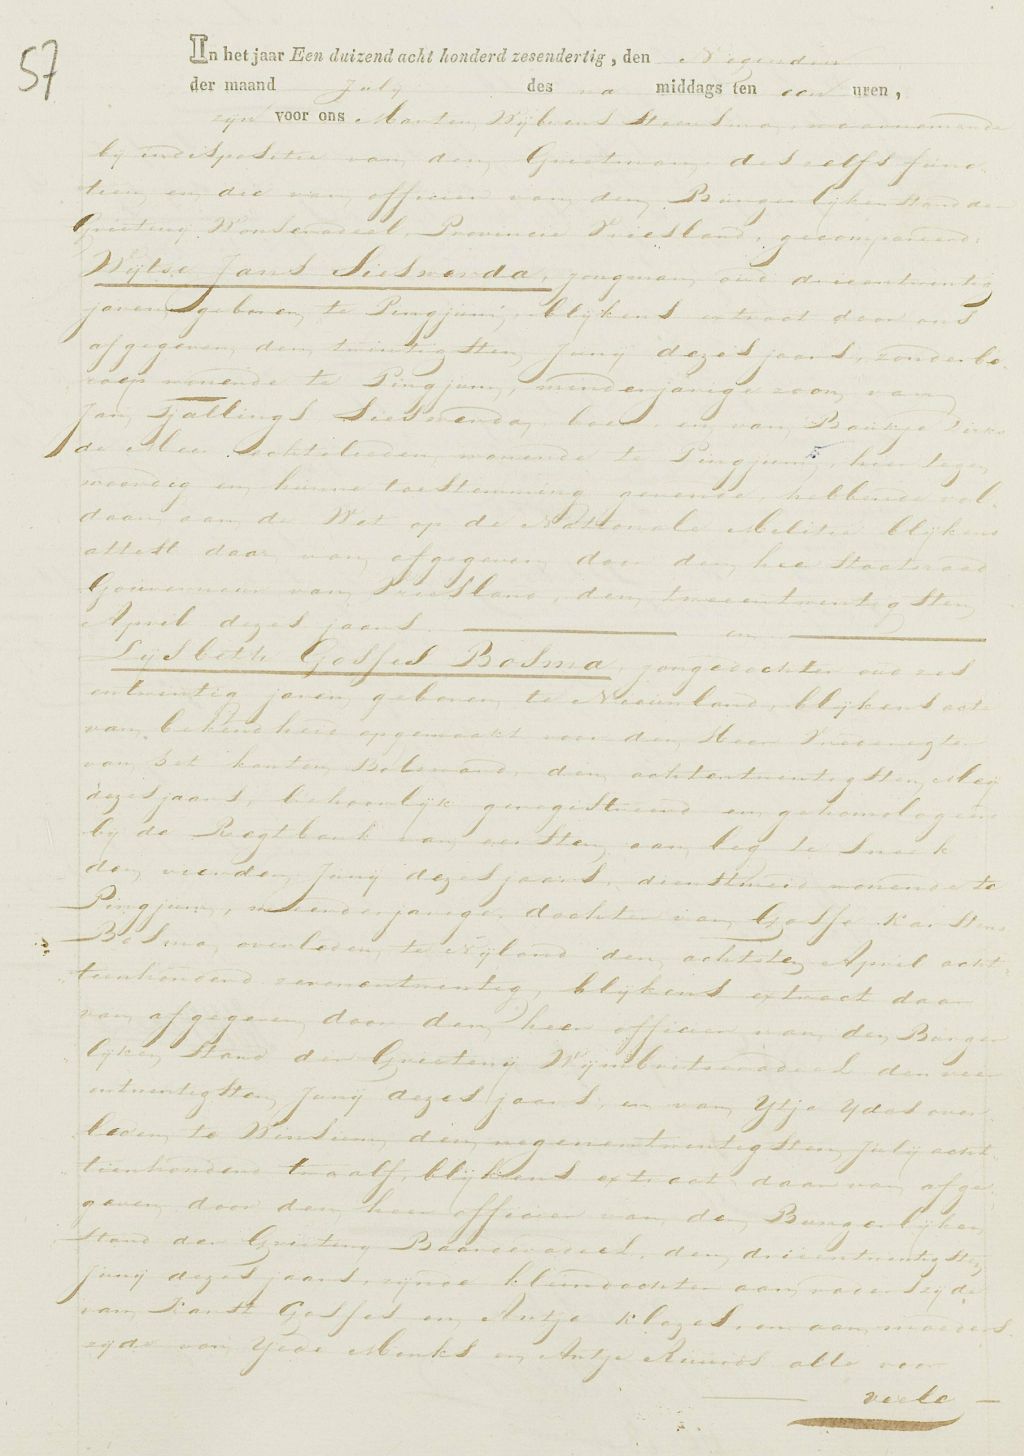 57
In het jaar Een duizend acht honderd zesendertig, den Negenden
der maand July des na middags ten een uren,
zyn voor ons Marten Wybrens Steensma, waarnemende
by indispositie van den Grietman, deszelfs func-
tien en die van officier van den Burgerlijken stand der
Grieteny Wonseradeel, Provincie Vriesland, gecompareerd:
Wytse Jans Sieswerda, jongman, oud drieentwintig
jaren, geboren te Pingjum, blijkens extract door ons
afgegeven den twintigsten Juny dezes jaars, zonder be-
roep wonende te Pingjum, minderjarige zoon van
Jan Tjallings Sieswerda, boer, en van Baukje Dirks
de Meer echtelieden, wonende te Pingjum, hier tegen
woordig en hunne toestemming gevende, hebbende vol-
daan aan de Wet op de Nationale Militie blijkens
attest daar van afgegeven door den heer Staatsraad
Gouverneur van Vriesland, den tweeentwintigsten
April dezes jaars. en
Lijsbeth Gosses Bosma, jongedochter oud zes
entwintig jaren, geboren te Nieuwland, blijkens acte
van bekendheid opgemaakt voor den Heer Vrederegter
van het kanton Bolsward, den achtentwintigsten Mey
dezes jaars, behoorlijk geregistreerd en gehomologeerd
by de Regtbank van eersten aanleg te Sneek
den vierden Juny dezes jaars, dienstmeid wonende te
Pingjum, minderjarige dochter van Gosse Karstens
Bosma, overleden te Nyland den achtsten April acht-
tienhonderd zevenentwintig, blijkens extract daar
van afgegeven door den heer officier van den Burger
lijken Stand der Grieteny Wymbritseradeel den vier
entwintigsten Juny dezes jaars, en van Ytje Ydes over
leden te Winsum den negenentwintigsten July acht-
tienhonderd twaalf, blijkens extract daar van afge
geven door den heer officier van den Burgerlijken
Stand der Grieteny Baarderadeel, den drieentwintigsten
Juny dezes jaars, zijnde kleindochter aan vaders zyde
van Karst Gosses en Antje Klazes, en aan moeders
zyde van Yede Menks en Antje Ruurds alle voor
— veele —